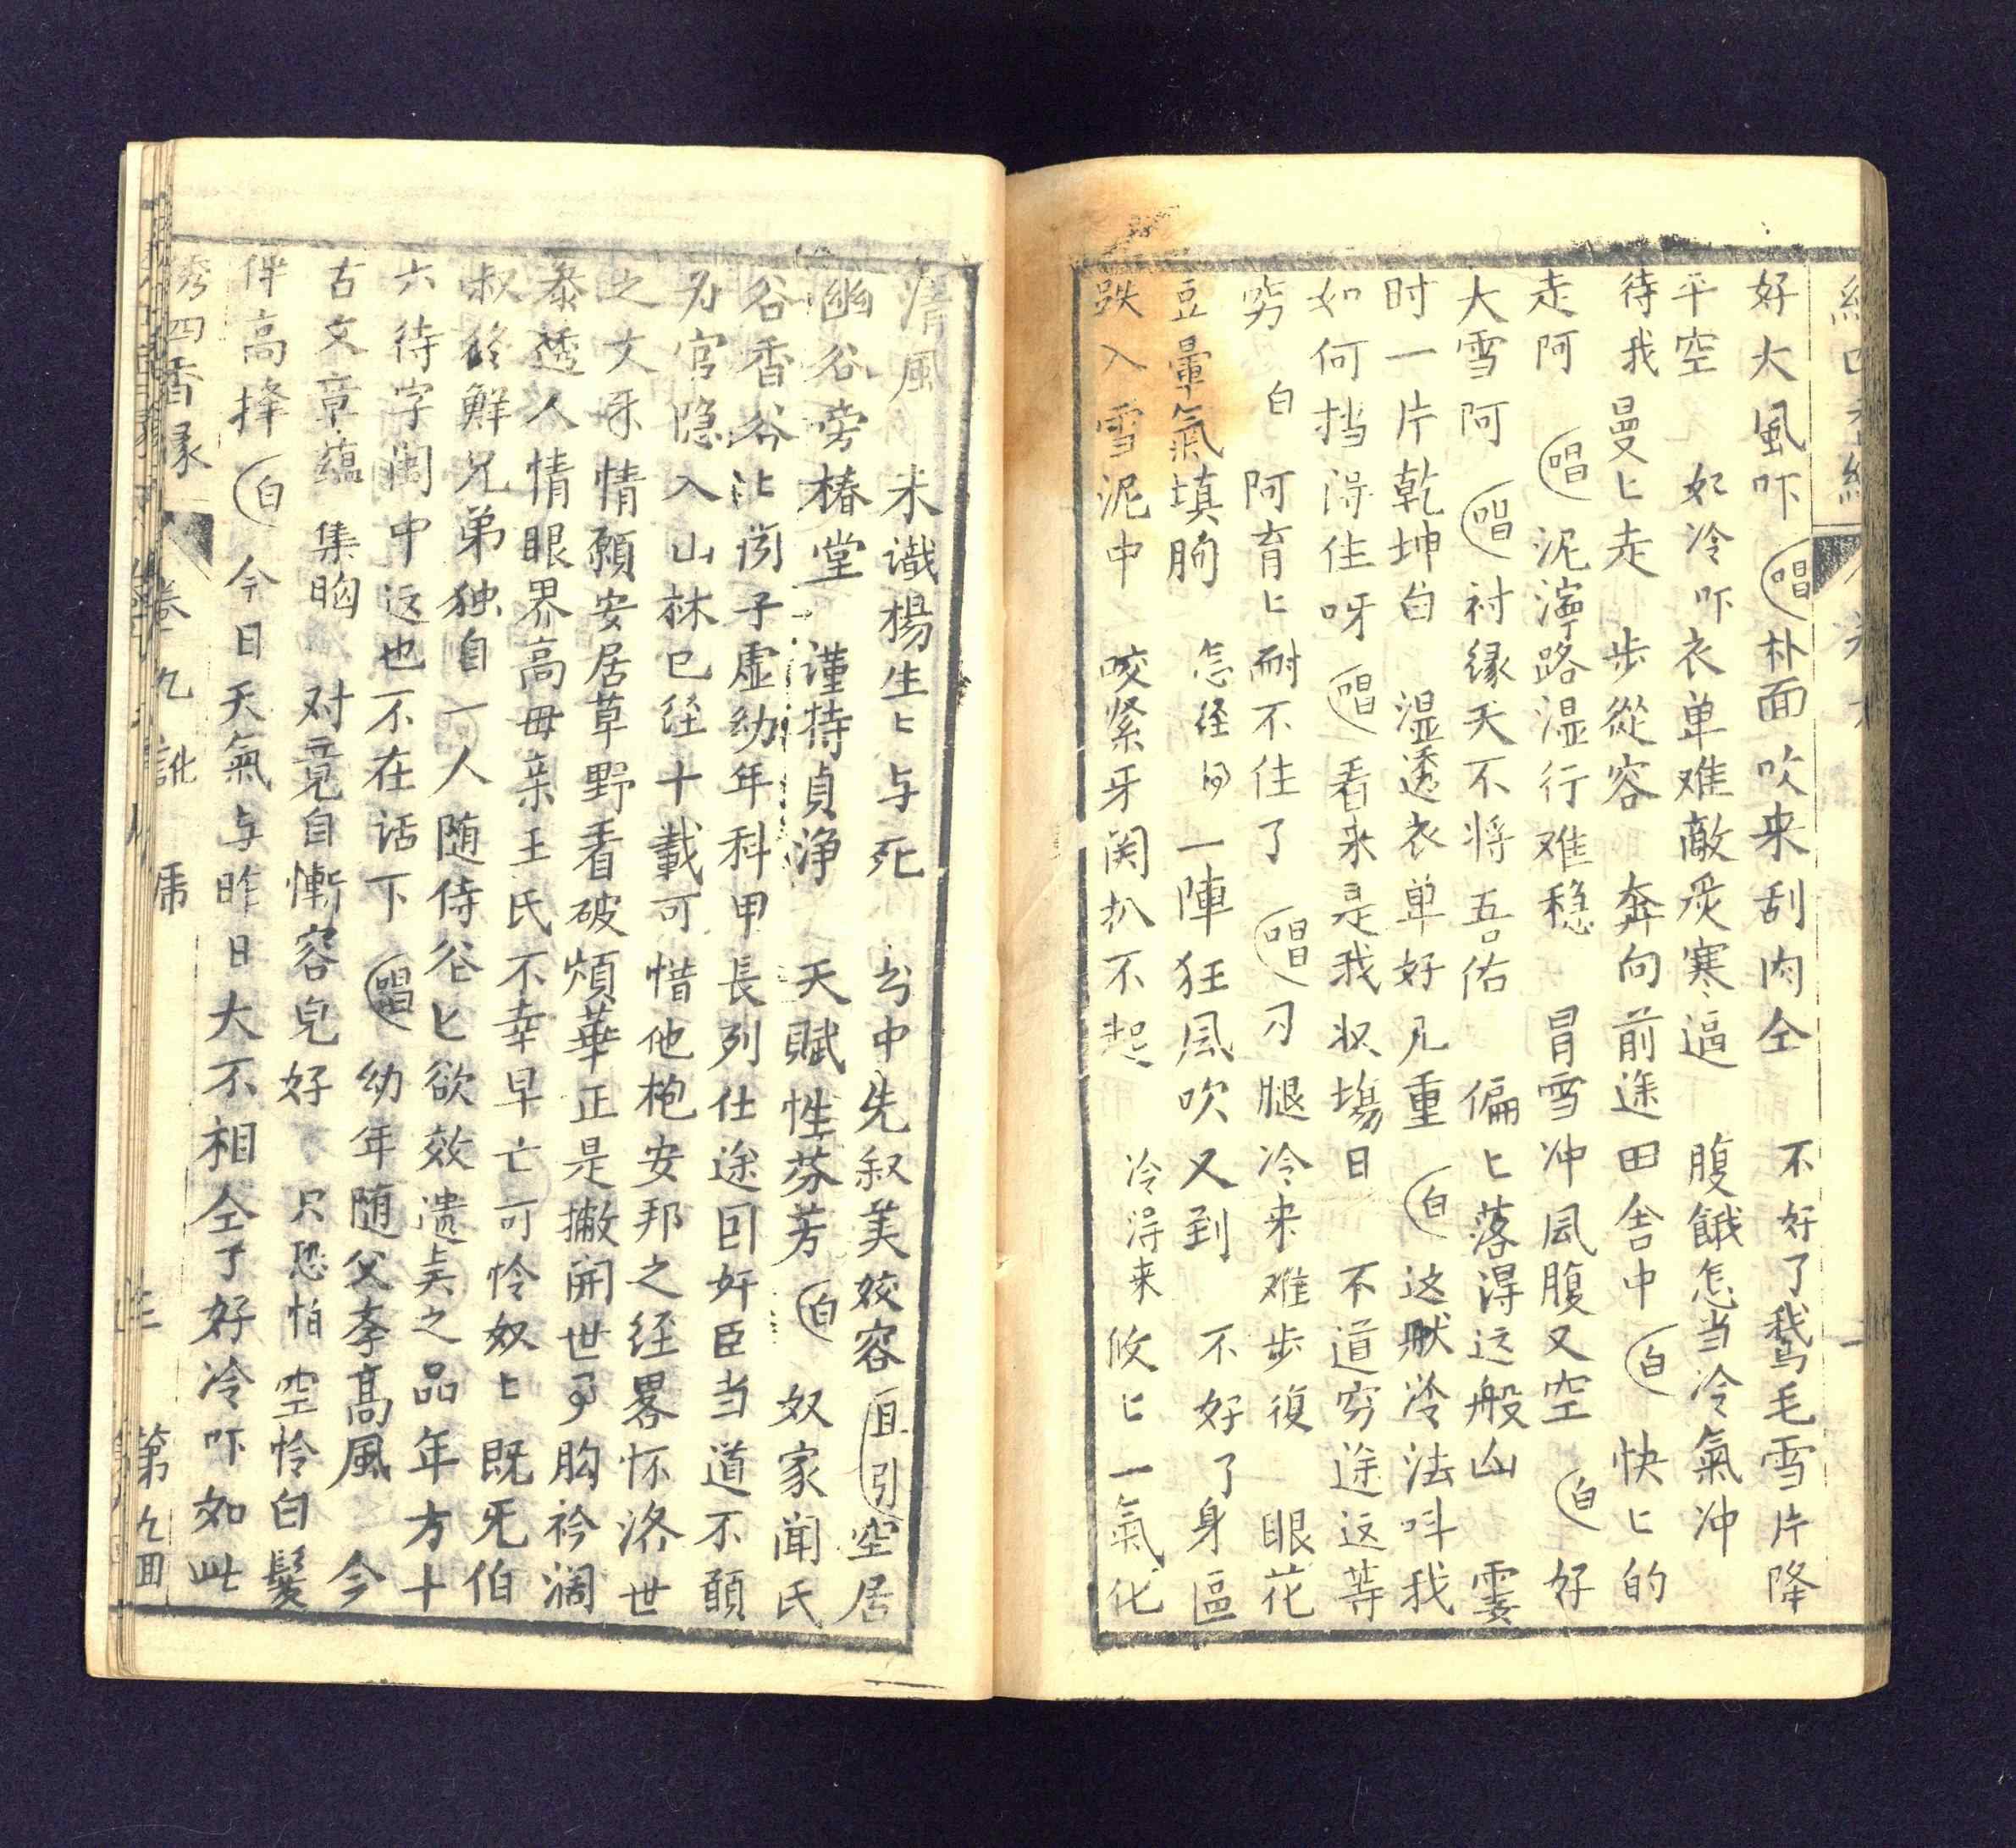 好大風吓 唱 朴面吹来刮肉仝 不好了鵞毛雪片降
平空 好冷吓衣单难敵炭寒逼 腹餓怎当冷氣冲
待我曼匕走 步從容 奔向前途田舍中 白 快匕的
走阿 唱 泥濘路湿行难穏 冐雪冲凮腹又空 白 好
大雪阿 唱 衬缘天不将吾佑 偏匕落淂这般凶 霎
时一片乾坤白 湿透衣单好几重 白 这般冷法呌我
如何挡淂住呀 唱 看来是我收塲日 不道穷途这等
穷 白 阿育匕耐不住了 唱 刃腿冷来难步復 眼花
豆暈氣填胸 怎径 一陣狂凮吹又到 不好了身區
跌入雪泥中 咬紧牙関扒不起 冷淂来 攸匕一氣化
清風 未識楊生匕与死 出中先叙美姣容 且引 空居
幽谷旁椿堂 谨持貞净 天賦性芬芳 白 奴家闻氏
谷香谷匕 子虚幼年科甲長列仕途因奸臣当道不願
为官隐入山林已径十載可惜他枹安邦之径畧怀济世
之大才情願安居草野看破煩華正是撇開世 胸衿濶
叅透人情眼界高毋亲王氏不幸早亡可怜奴匕既旡伯
叔終鮮兄弟独自一人随侍爷匕欲效遗 之品年方十
六待字闺中这也不在话下 唱 幼年随父李髙風 今
古文章蕴集胸 对竟自慚容皃好 只恐怕空怜白髮
伴高择 白 今日天氣与昨日大不相仝了好冷吓如此
秀四香缘 卷九 訛 席 第九囬